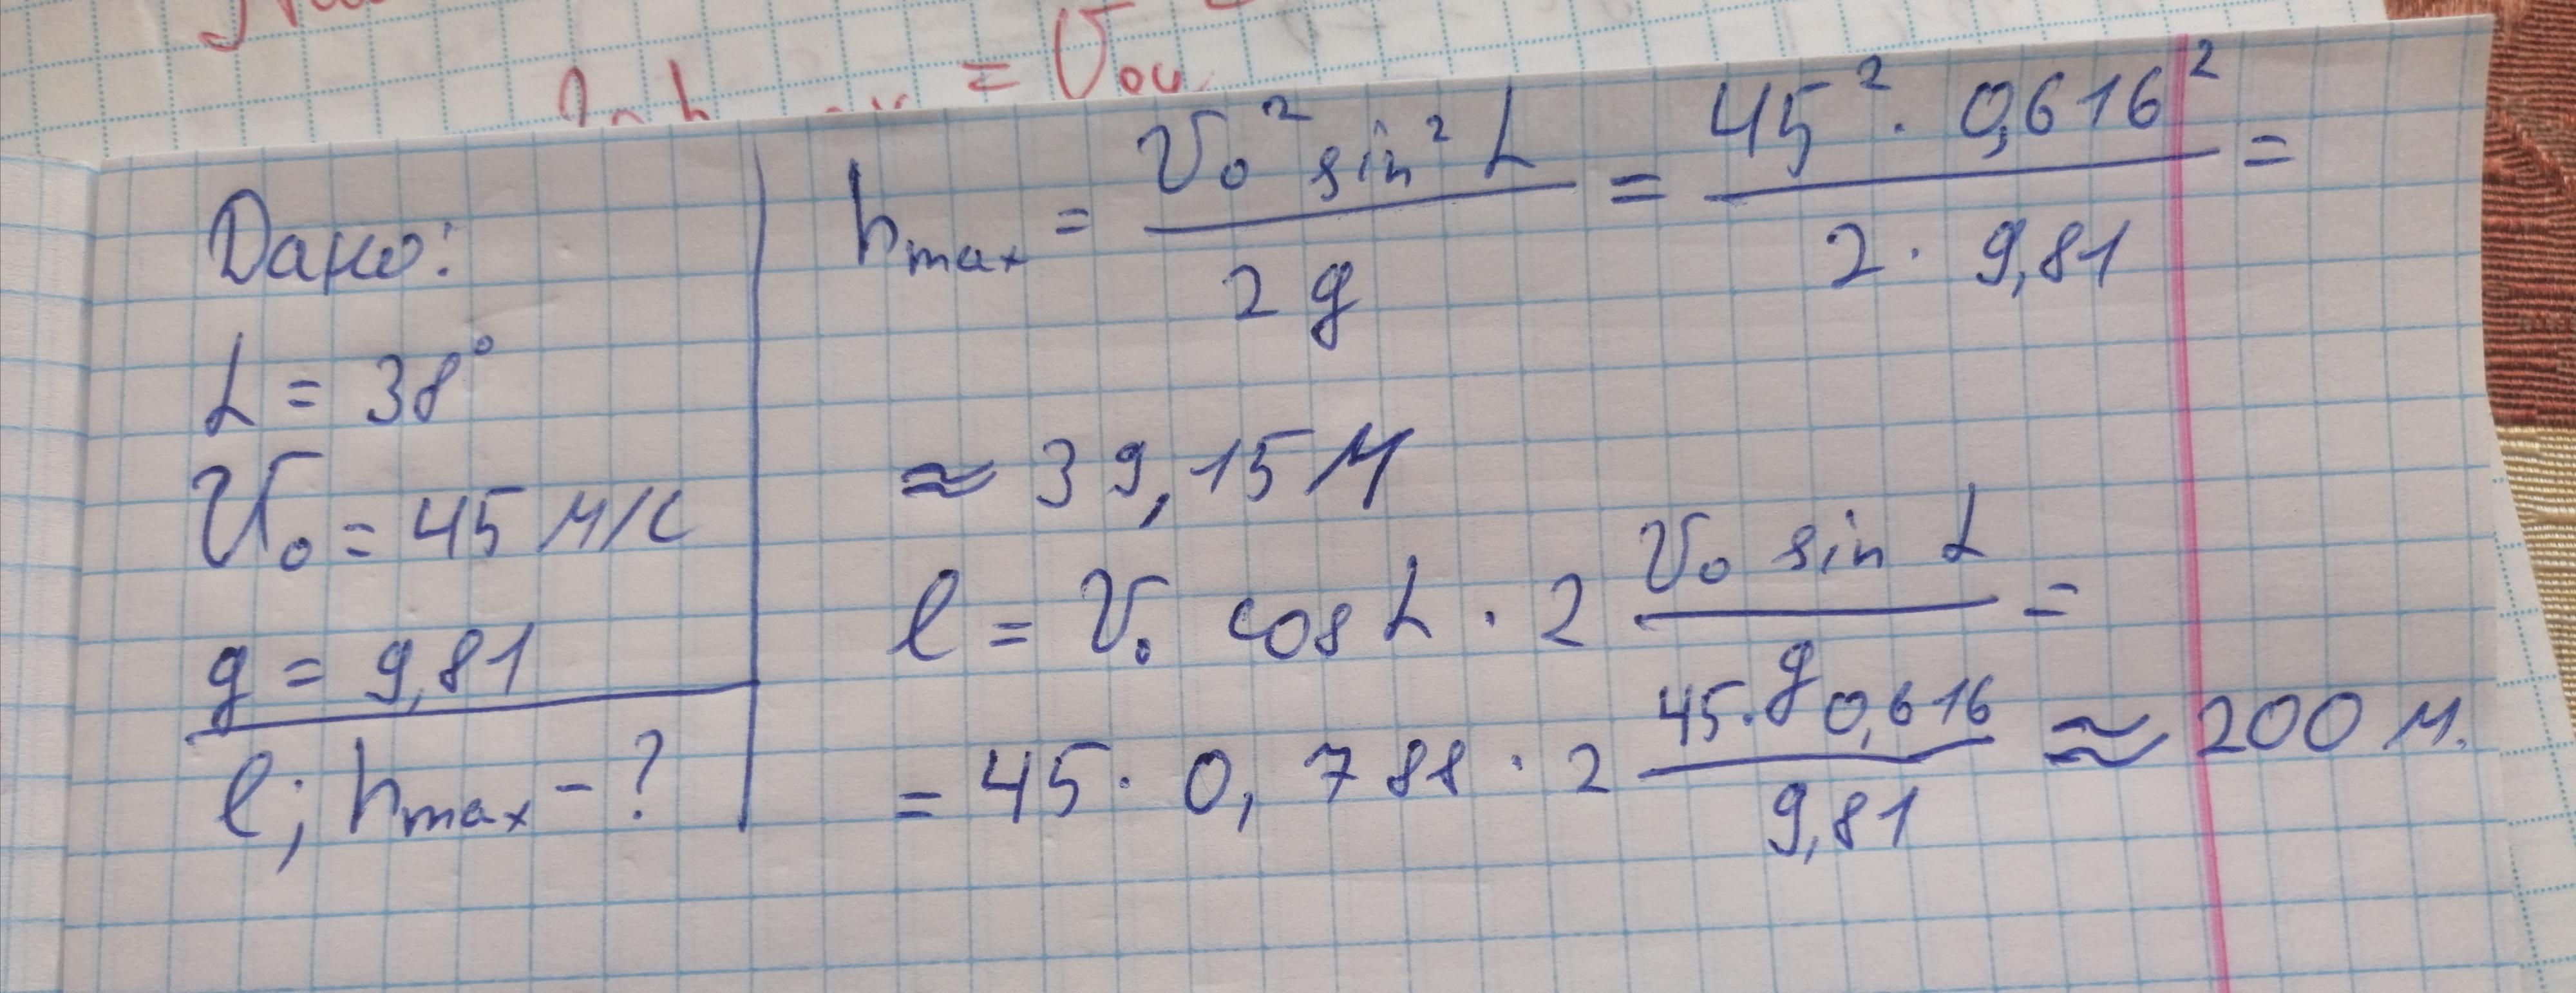 = V₀y
Дано:
L = 38°
V₀ = 45 м/с
g = 9,81
l; hmax - ?
hmax = V₀² sin² L / 2 g = 45² · 0,616² / 2 · 9,81 =
≈ 39,15 м
l = V₀ cos L · 2 V₀ sin L / g =
= 45 · 0,788 · 2 45 · 0,616 / 9,81 ≈ 200 м.